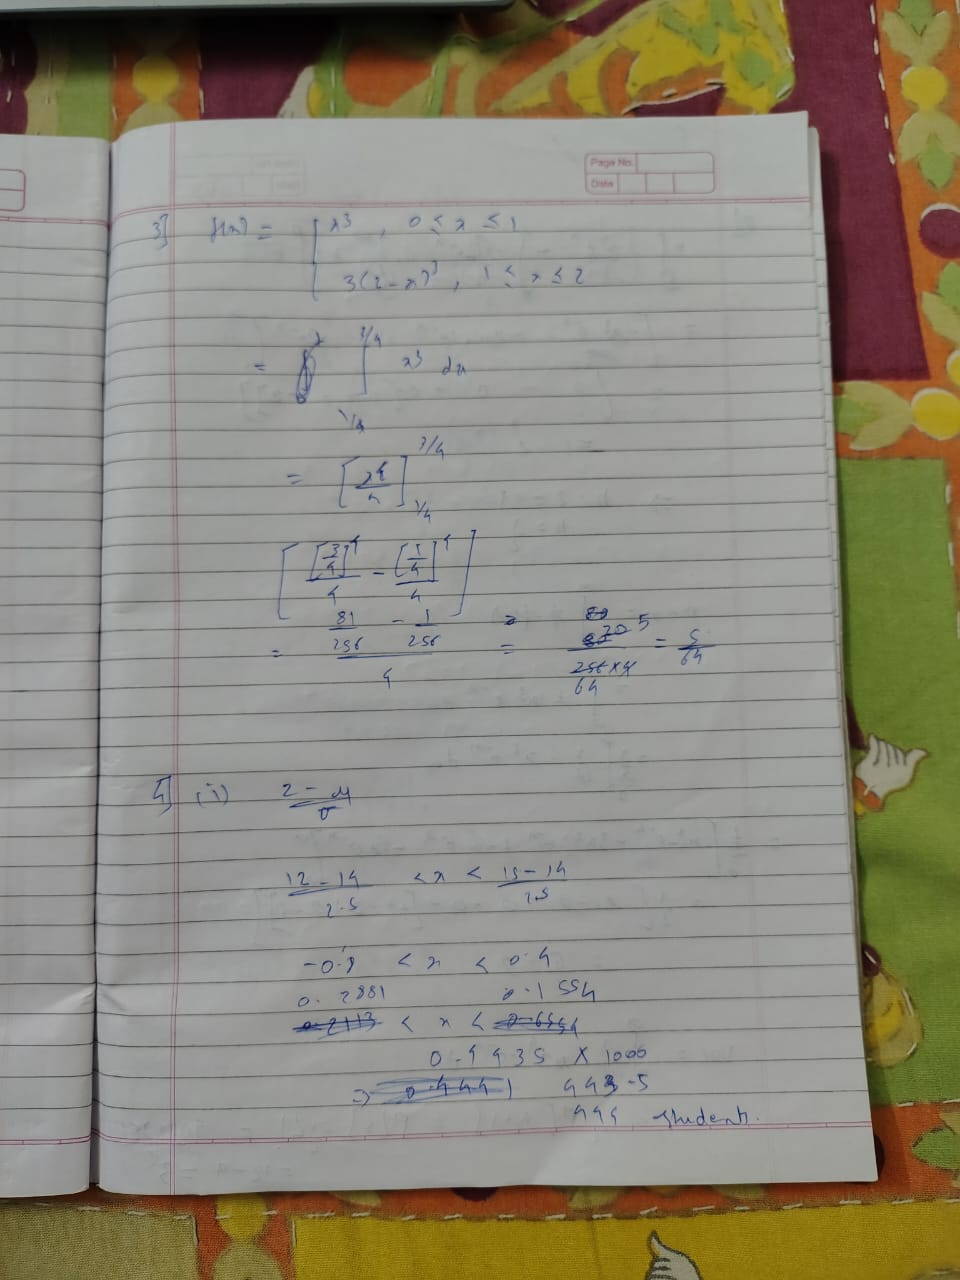 Page No.
Date
3] f(x) = { x³ , 0 ≤ x ≤ 1
3(2-x)³ , 1 ≤ x ≤ 2
= ∫ 1/4 3/4 x³ dx
= [x⁴/4] 1/4 3/4
[ [3/4]⁴/4 - [1/4]⁴/4 ]
= (81/256 - 1/256)/4 = 5/64
4] (i) (z-μ)/σ
(12-14)/2.5 < x < (15-14)/2.5
-0.8 < x < 0.4
0.2881 0.1554
< x <
0.4435 × 1000
⇒ 443.5
444 students.